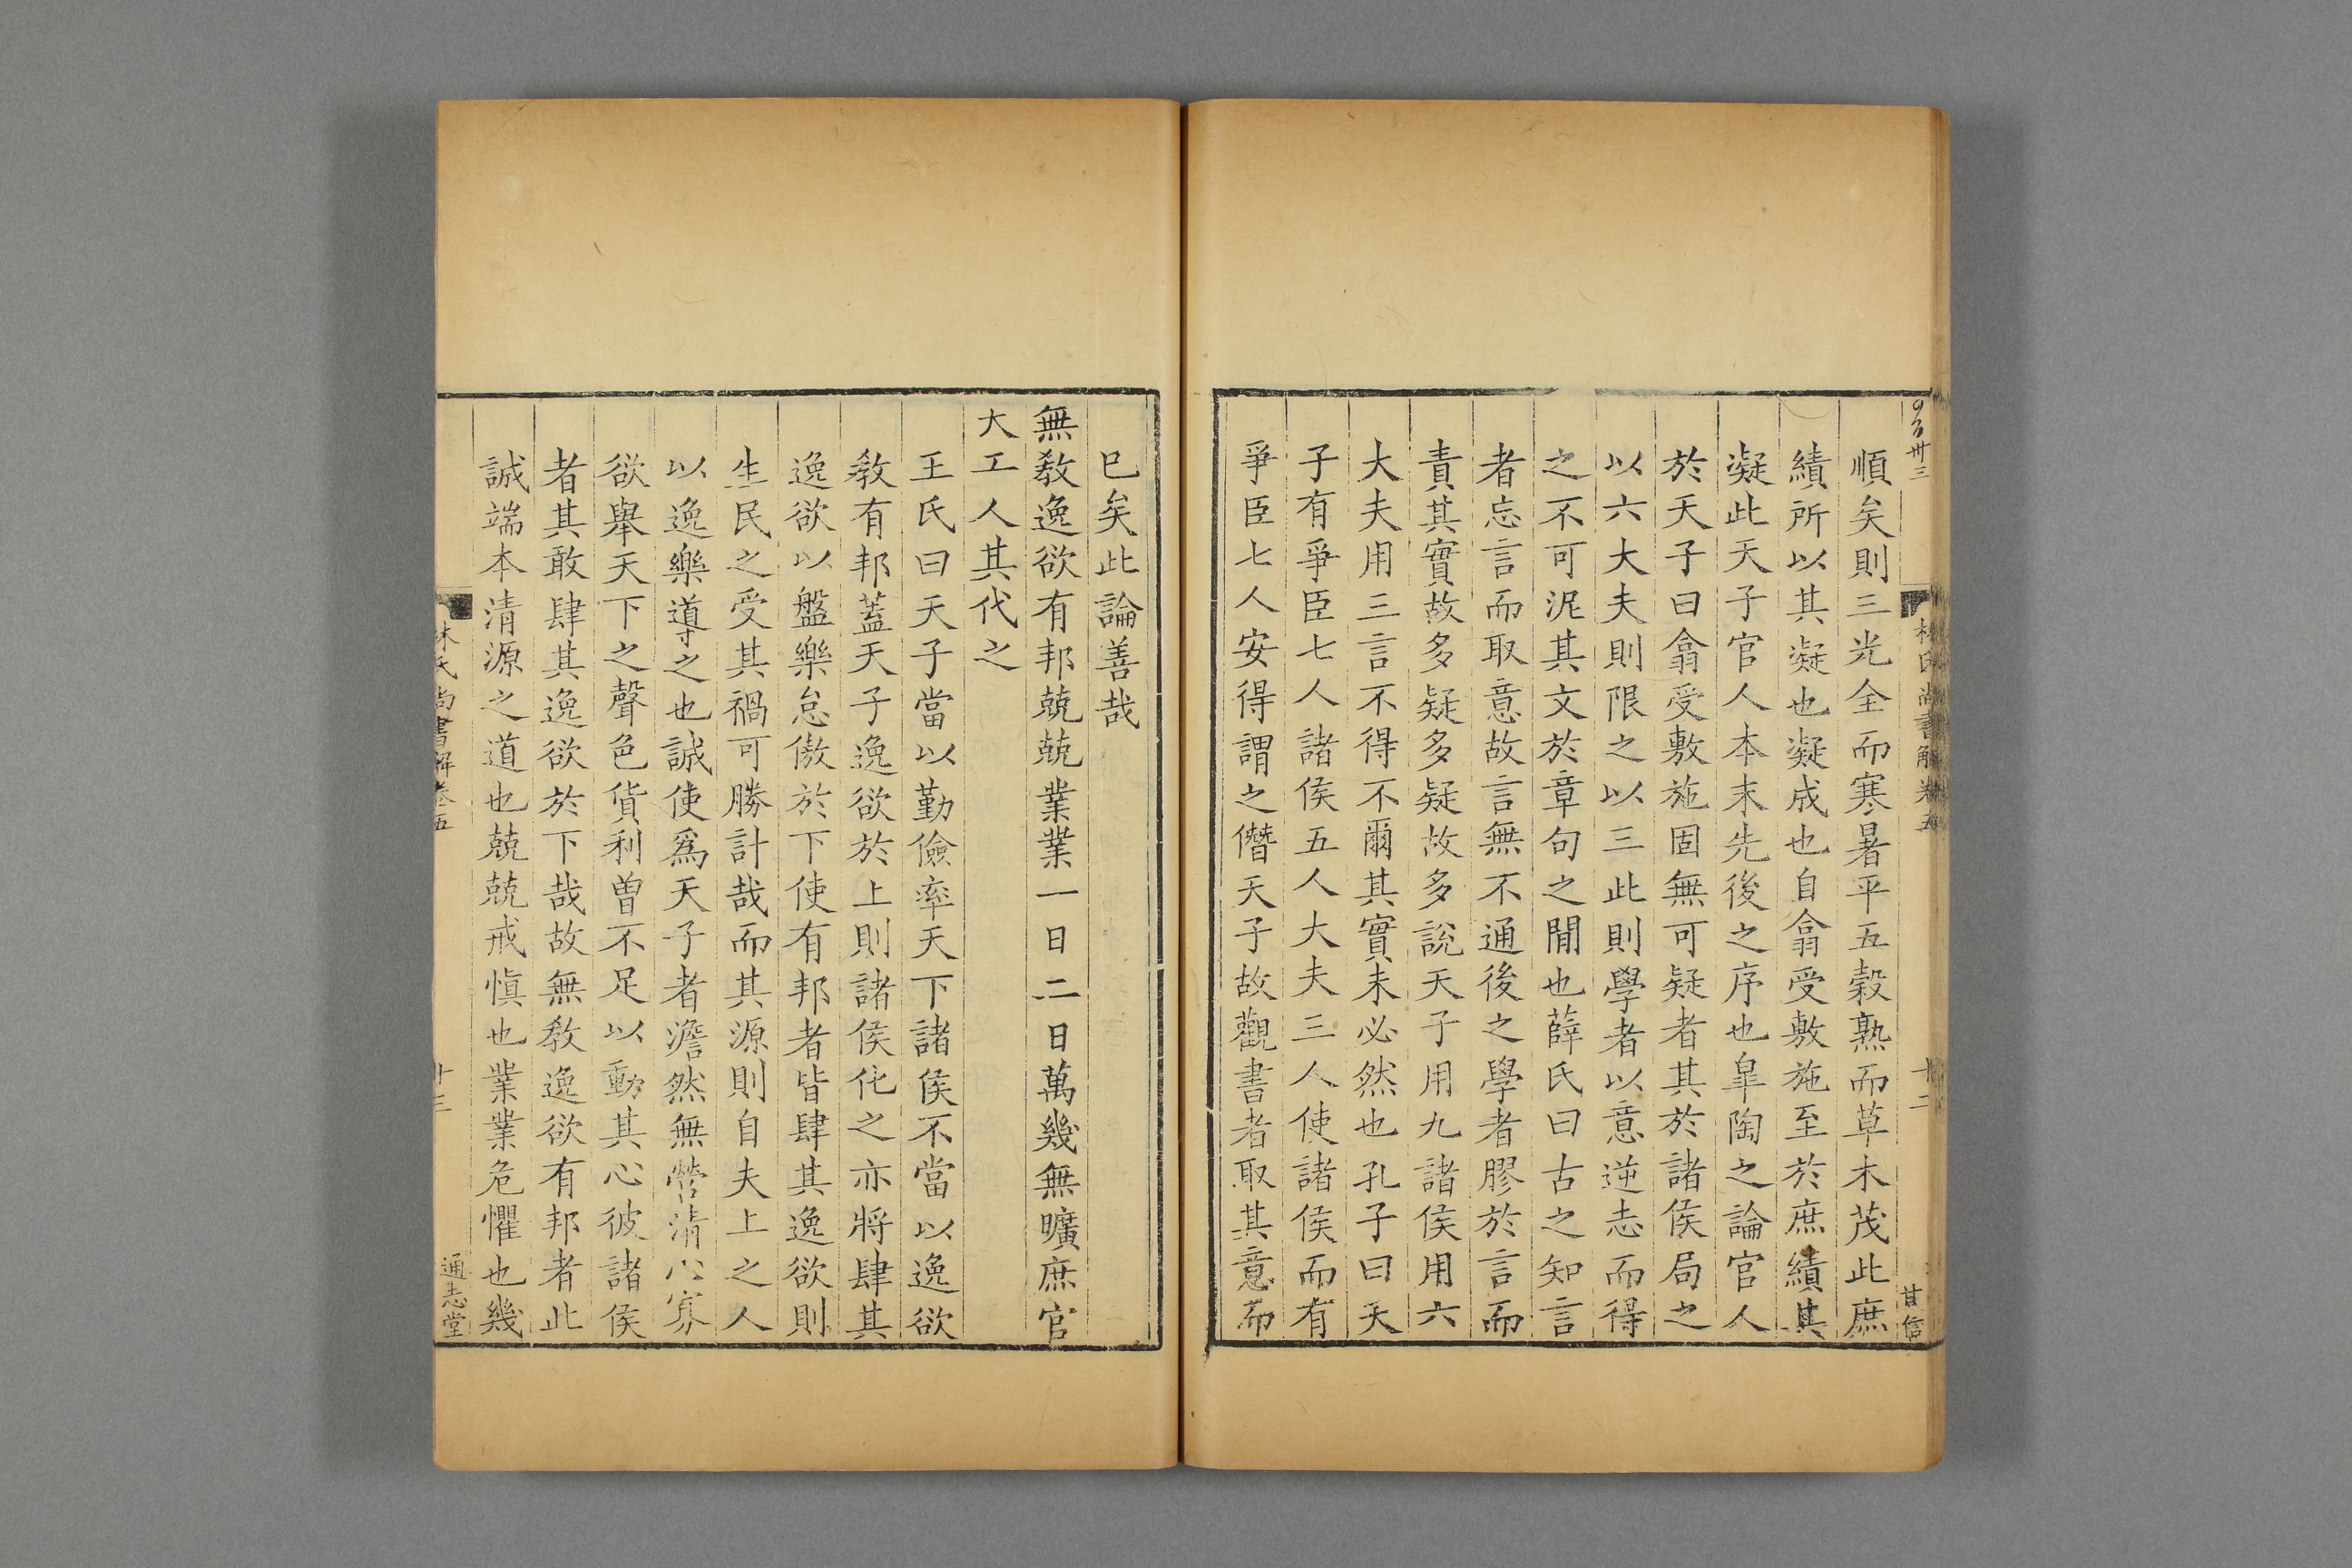 順矣則三光全而寒暑平五穀熟而草木茂此庶
績所以其凝也凝成也自翕受敷施至於庶績其
凝此天子官人本末先後之序也臯陶之論官人
於天子曰翕受敷施固無可疑者其於諸侯局之
以六大夫則限之以三此則學者以意逆志而得
之不可泥其文於章句之閒也薛氏曰古之知言
者忘言而取意故言無不通後之學者膠於言而
責其實故多疑多疑故多說天子用九諸侯用六
大夫用三言不得不爾其實未必然也孔子曰天
子有爭臣七人諸侯五人大夫三人使諸侯而有
爭臣七人安得謂之僭天子故觀書者取其意而
已矣此論善哉
無敎逸欲有邦兢兢業業一日二日萬幾無曠庶官
大工人其代之
王氏曰天子當以勤儉率天下諸侯不當以逸欲
敎有邦蓋天子逸欲於上則諸侯化之亦將肆其
逸欲以盤樂怠傲於下使有邦者皆肆其逸欲則
生民之受其禍可勝計哉而其源則自夫上之人
以逸樂導之也誠使爲天子者澹然無營清心寡
欲舉天下之聲色貨利曾不足以動其心彼諸侯
者其敢肆其逸欲於下哉故無敎逸欲有邦者此
誠端本清源之道也兢兢戒愼也業業危懼也幾
林氏尚書解卷五
十三
通志堂
林氏尚書解卷五
十二
甘信